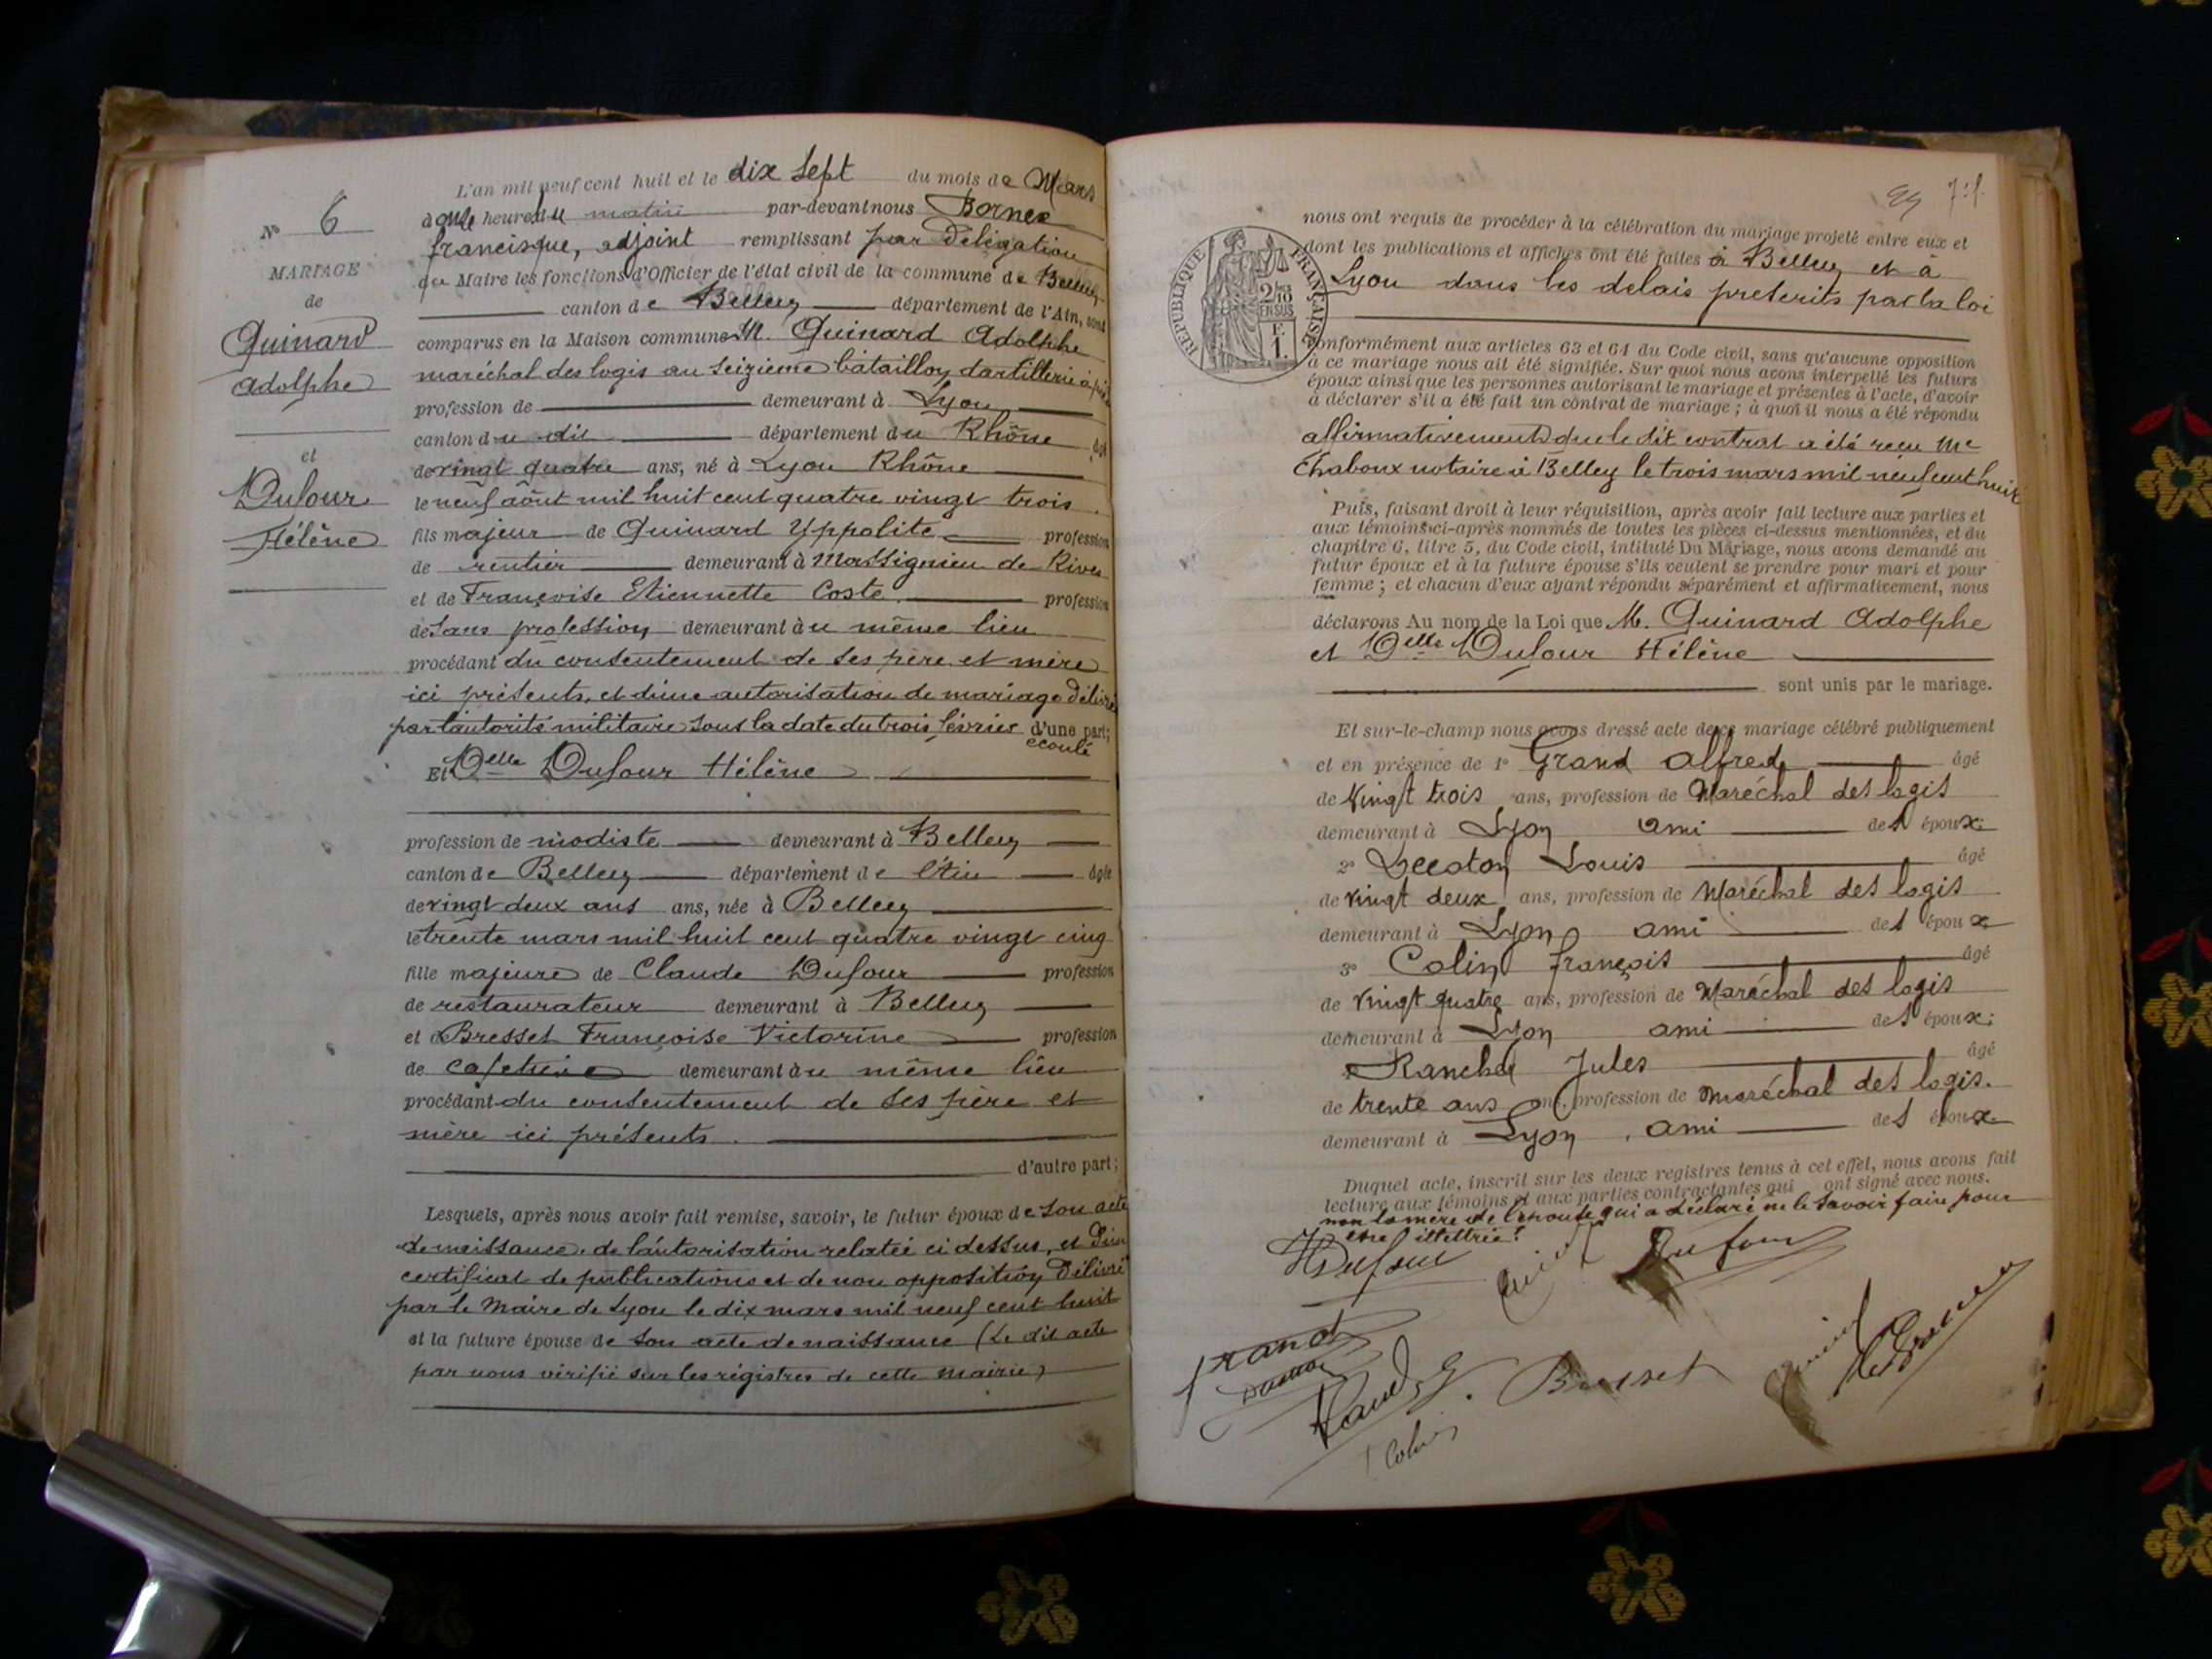 N° 6
MARIAGE
de
Guinard
Adolphe
et
Dufour
Hélène
L'an mil neuf cent huit et le dix sept du mois de Mars
à onze heures du matin par-devant nous Borner
francisque, adjoint remplissant par délégation
du Maire les fonctions d'Officier de l'état civil de la commune de Belley
canton de Belley département de l'Ain, sont
comparus en la Maison commune M. Guinard Adolphe
maréchal des logis au seizième bataillon d'artillerie à pied
profession de demeurant à Lyon
canton du dit département du Rhône âgé
de vingt quatre ans, né à Lyon Rhône
le neuf août mil huit cent quatre vingt trois
fils majeur de Guinard Yppolite profession
de rentier demeurant à Massignieu de Rives
et de Françoise Etiennette Coste profession
de sans profession demeurant au même lieu
procédant du consentement de ses père et mère
ici présents, et d'une autorisation de mariage délivrée
par l'autorité militaire sous la date du trois février d'une part;
écoulé
Et Delle Dufour Hélène
profession de modiste demeurant à Belley
canton de Belley département de l'Ain âgée
de vingt deux ans ans, née à Belley
le trente mars mil huit cent quatre vingt cinq
fille majeure de Claude Dufour profession
de restaurateur demeurant à Belley
et Bresset Françoise Victorine profession
de cafetière demeurant au même lieu
procédant du consentement de ses père et
mère ici présents.
d'autre part;
Lesquels, après nous avoir fait remise, savoir, le futur époux de son acte
de naissance, de l'autorisation relatée ci dessus, et d'un
certificat de publications et de non opposition délivré
par le Maire de Lyon le dix mars mil neuf cent huit
et la future épouse de son acte de naissance (Le dit acte
par nous vérifié sur les régistres de cette mairie)
RÉPUBLIQUE FRANÇAISE
2/10
EN SUS
F.
1.
nous ont requis de procéder à la célébration du mariage projeté entre eux et
dont les publications et affiches ont été faites à Belley et à
Lyon dans les delais prescrits par la loi
conformément aux articles 63 et 64 du Code civil, sans qu'aucune opposition
à ce mariage nous ait été signifiée. Sur quoi nous avons interpellé les futurs
époux ainsi que les personnes autorisant le mariage et présentes à l'acte, d'avoir
à déclarer s'il a été fait un contrat de mariage; à quoi il nous a été répondu
affirmativement que le dit contrat a été reçu Me
Chaboux notaire à Belley le trois mars mil neuf cent huit
Puis, faisant droit à leur réquisition, après avoir fait lecture aux parties et
aux témoins ci-après nommés de toutes les pièces ci-dessus mentionnées, et du
chapitre 6, titre 5, du Code civil, intitulé Du Mariage, nous avons demandé au
futur époux et à la future épouse s'ils veulent se prendre pour mari et pour
femme; et chacun d'eux ayant répondu séparément et affirmativement, nous
déclarons Au nom de la Loi que M. Guinard Adolphe
et Delle Dufour Hélène
sont unis par le mariage.
Et sur-le-champ nous avons dressé acte de ce mariage célébré publiquement
et en présence de 1° Grand Alfred âgé
de Vingt trois ans, profession de Maréchal des logis
demeurant à Lyon ami de l'époux;
2° Louis âgé
de vingt deux ans, profession de Maréchal des logis
demeurant à Lyon ami de l'époux
3° Colin françois âgé
de vingt quatre ans, profession de Maréchal des logis
demeurant à Lyon ami de l'époux;
Jules âgé
de trente ans ans, profession de maréchal des logis.
demeurant à Lyon, ami de l'époux
Duquel acte, inscrit sur les deux registres tenus à cet effet, nous avons fait
lecture aux témoins et aux parties contractantes qui ont signé avec nous.
non la mère de l'épouse qui a déclaré ne le savoir faire pour
être illettrée.
HDufour Dufour
Grand
Bresset
Colin